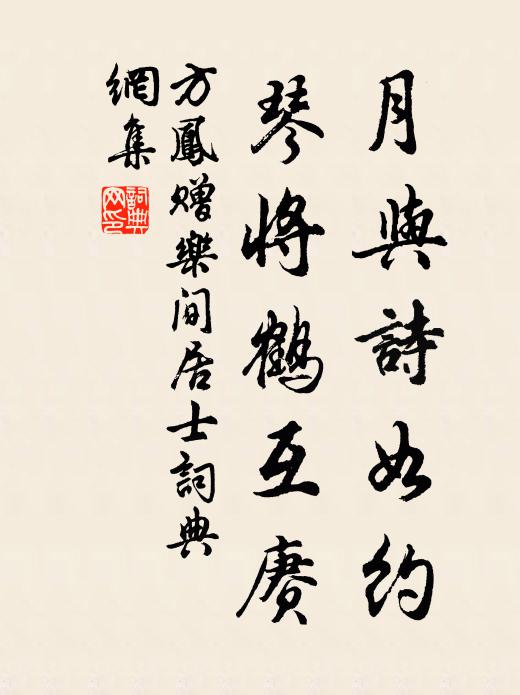 月與詩如約
琴將鶴互賡
方鳳贈樂閒居士詞典
網集
詞典
網印